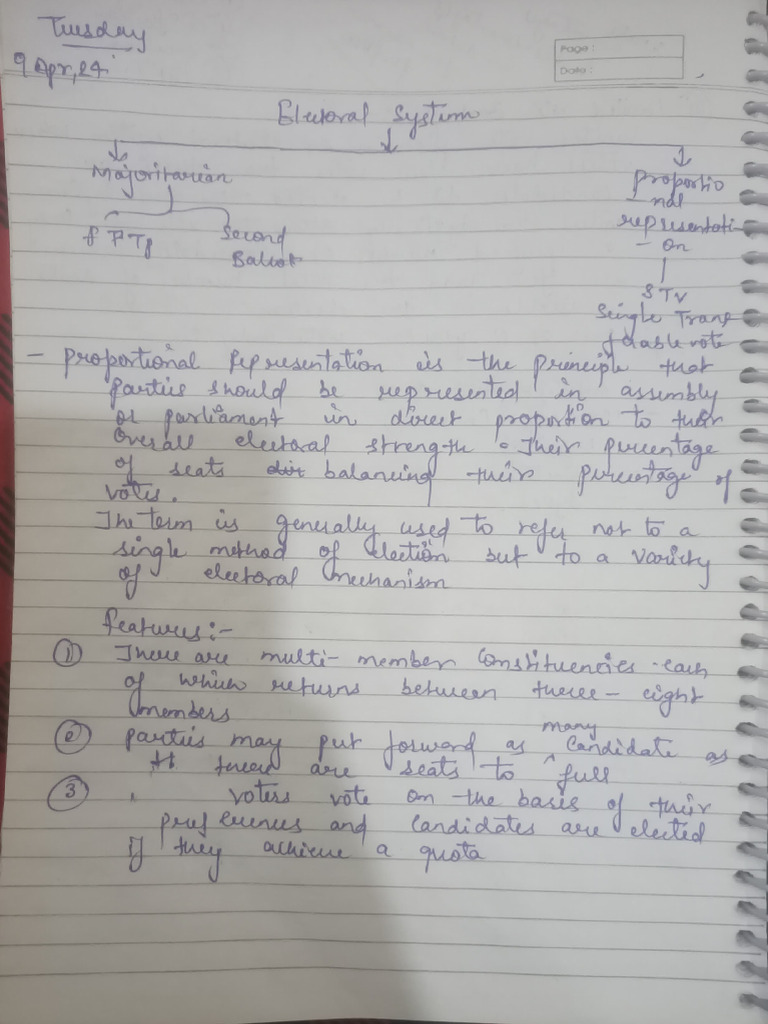 Tuesday
9 Apr, 24
Page :
Date :
Electoral System
Majoritarian
Proportio
nal
representati
- on
FPTP
Second
Ballot
STV
Single Trans
ferable vote
- Proportional Representation is the principle that
parties should be represented in assembly
or parliament in direct proportion to their
Overall electoral strength. Their percentage
of seats balancing their percentage of
votes.
The term is generally used to refer not to a
single method of election but to a variety
of electoral mechanism
features:-
① There are multi-member Constituencies each
of which returns between three - eight
members
② parties may put forward as many candidate as
there are seats to full
③ voters vote on the basis of their
preferences and candidates are elected
if they achieve a quota